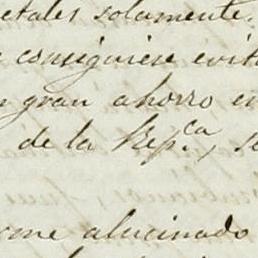 etales solamente.
consiguiese evit
gran ahorro en
de la Rep.ca, se
me alucinado